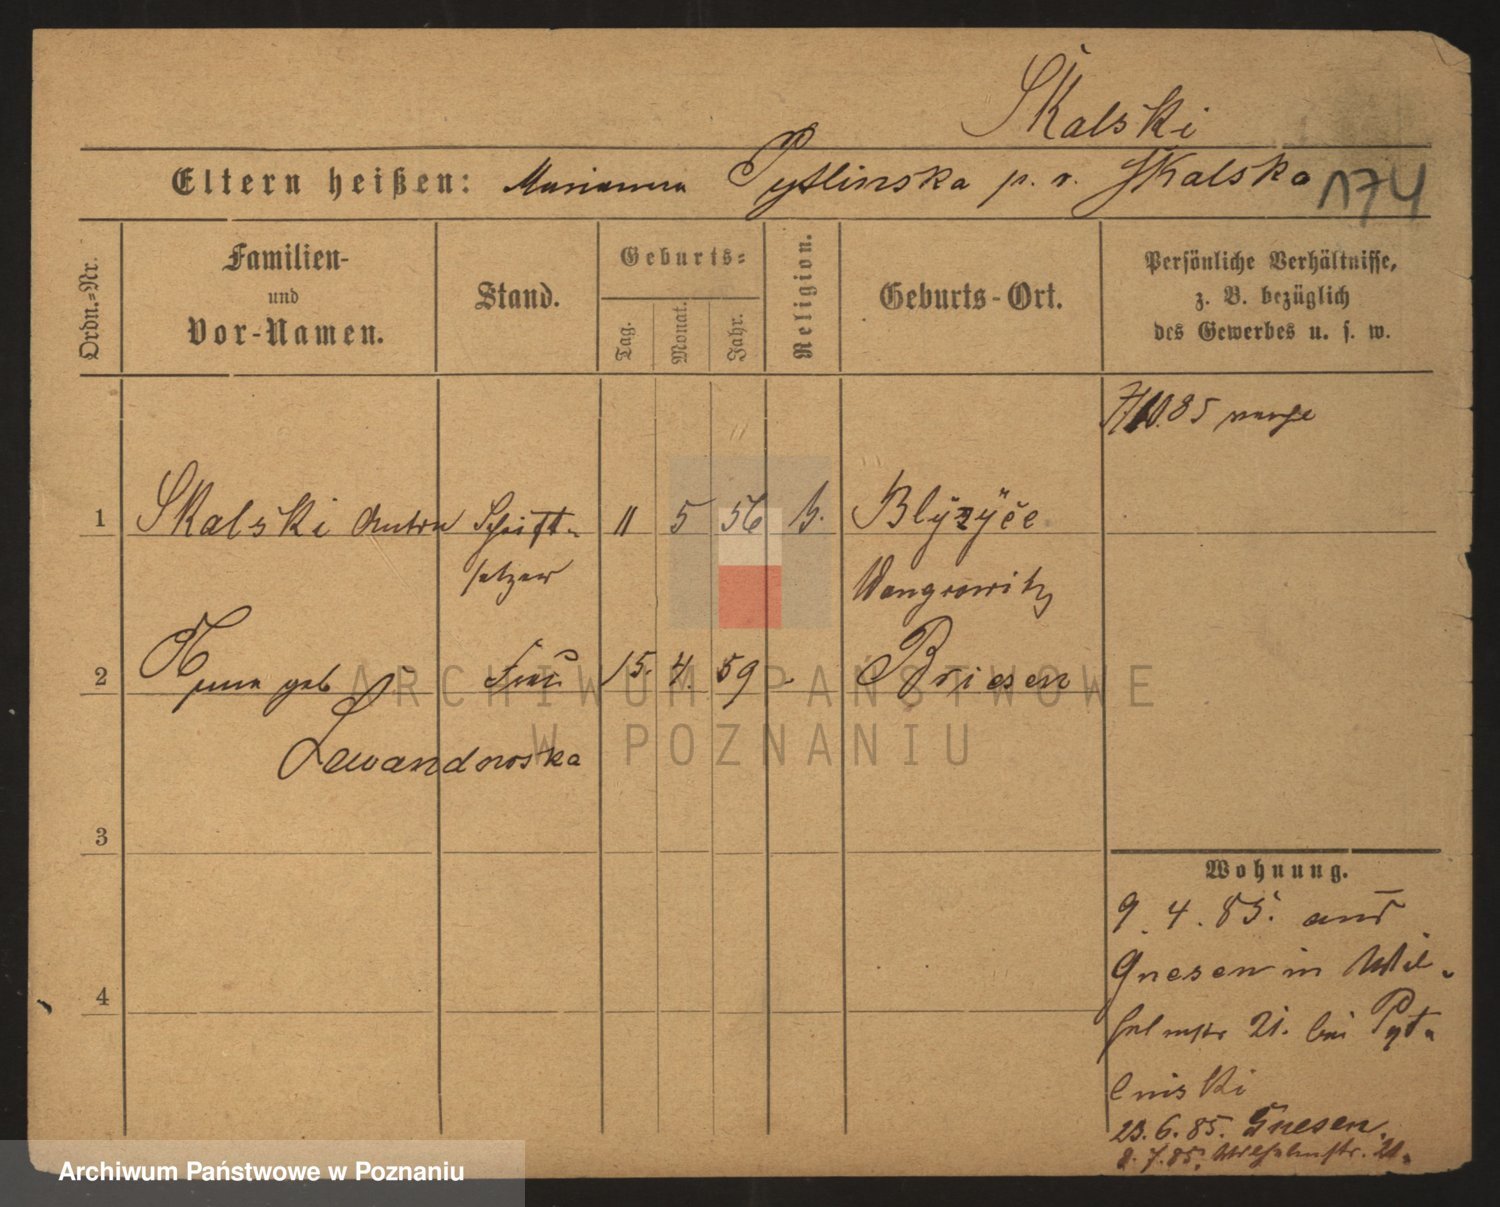 Skalski
Eltern heißen: Marianna Pytlinska p. v. Skalska 174
Ordn.=Nr.
Familien-
und
Vor-Namen.
Stand.
Geburts=
Tag.
Monat.
Jahr.
Religion.
Geburts-Ort.
Persönliche Verhältnisse,
z. B. bezüglich
des Gewerbes u. s. w.
85
1 Skalski Anton Schrift- 11 5 56 k.
setzer Wongrowitz
2 geb Frau 15. 4. 59 Briesen
Lewandowska
3
4
Wohnung.
9. 4. 85. aus
Gnesen in Wil-
helmstr 21. bei Pyt-
linski
23. 6. 85. Gnesen.
8. 7. 85. Wilhelmstr. 21.
ARCHIWUM PAŃSTWOWE
W POZNANIU
Archiwum Państwowe w Poznaniu